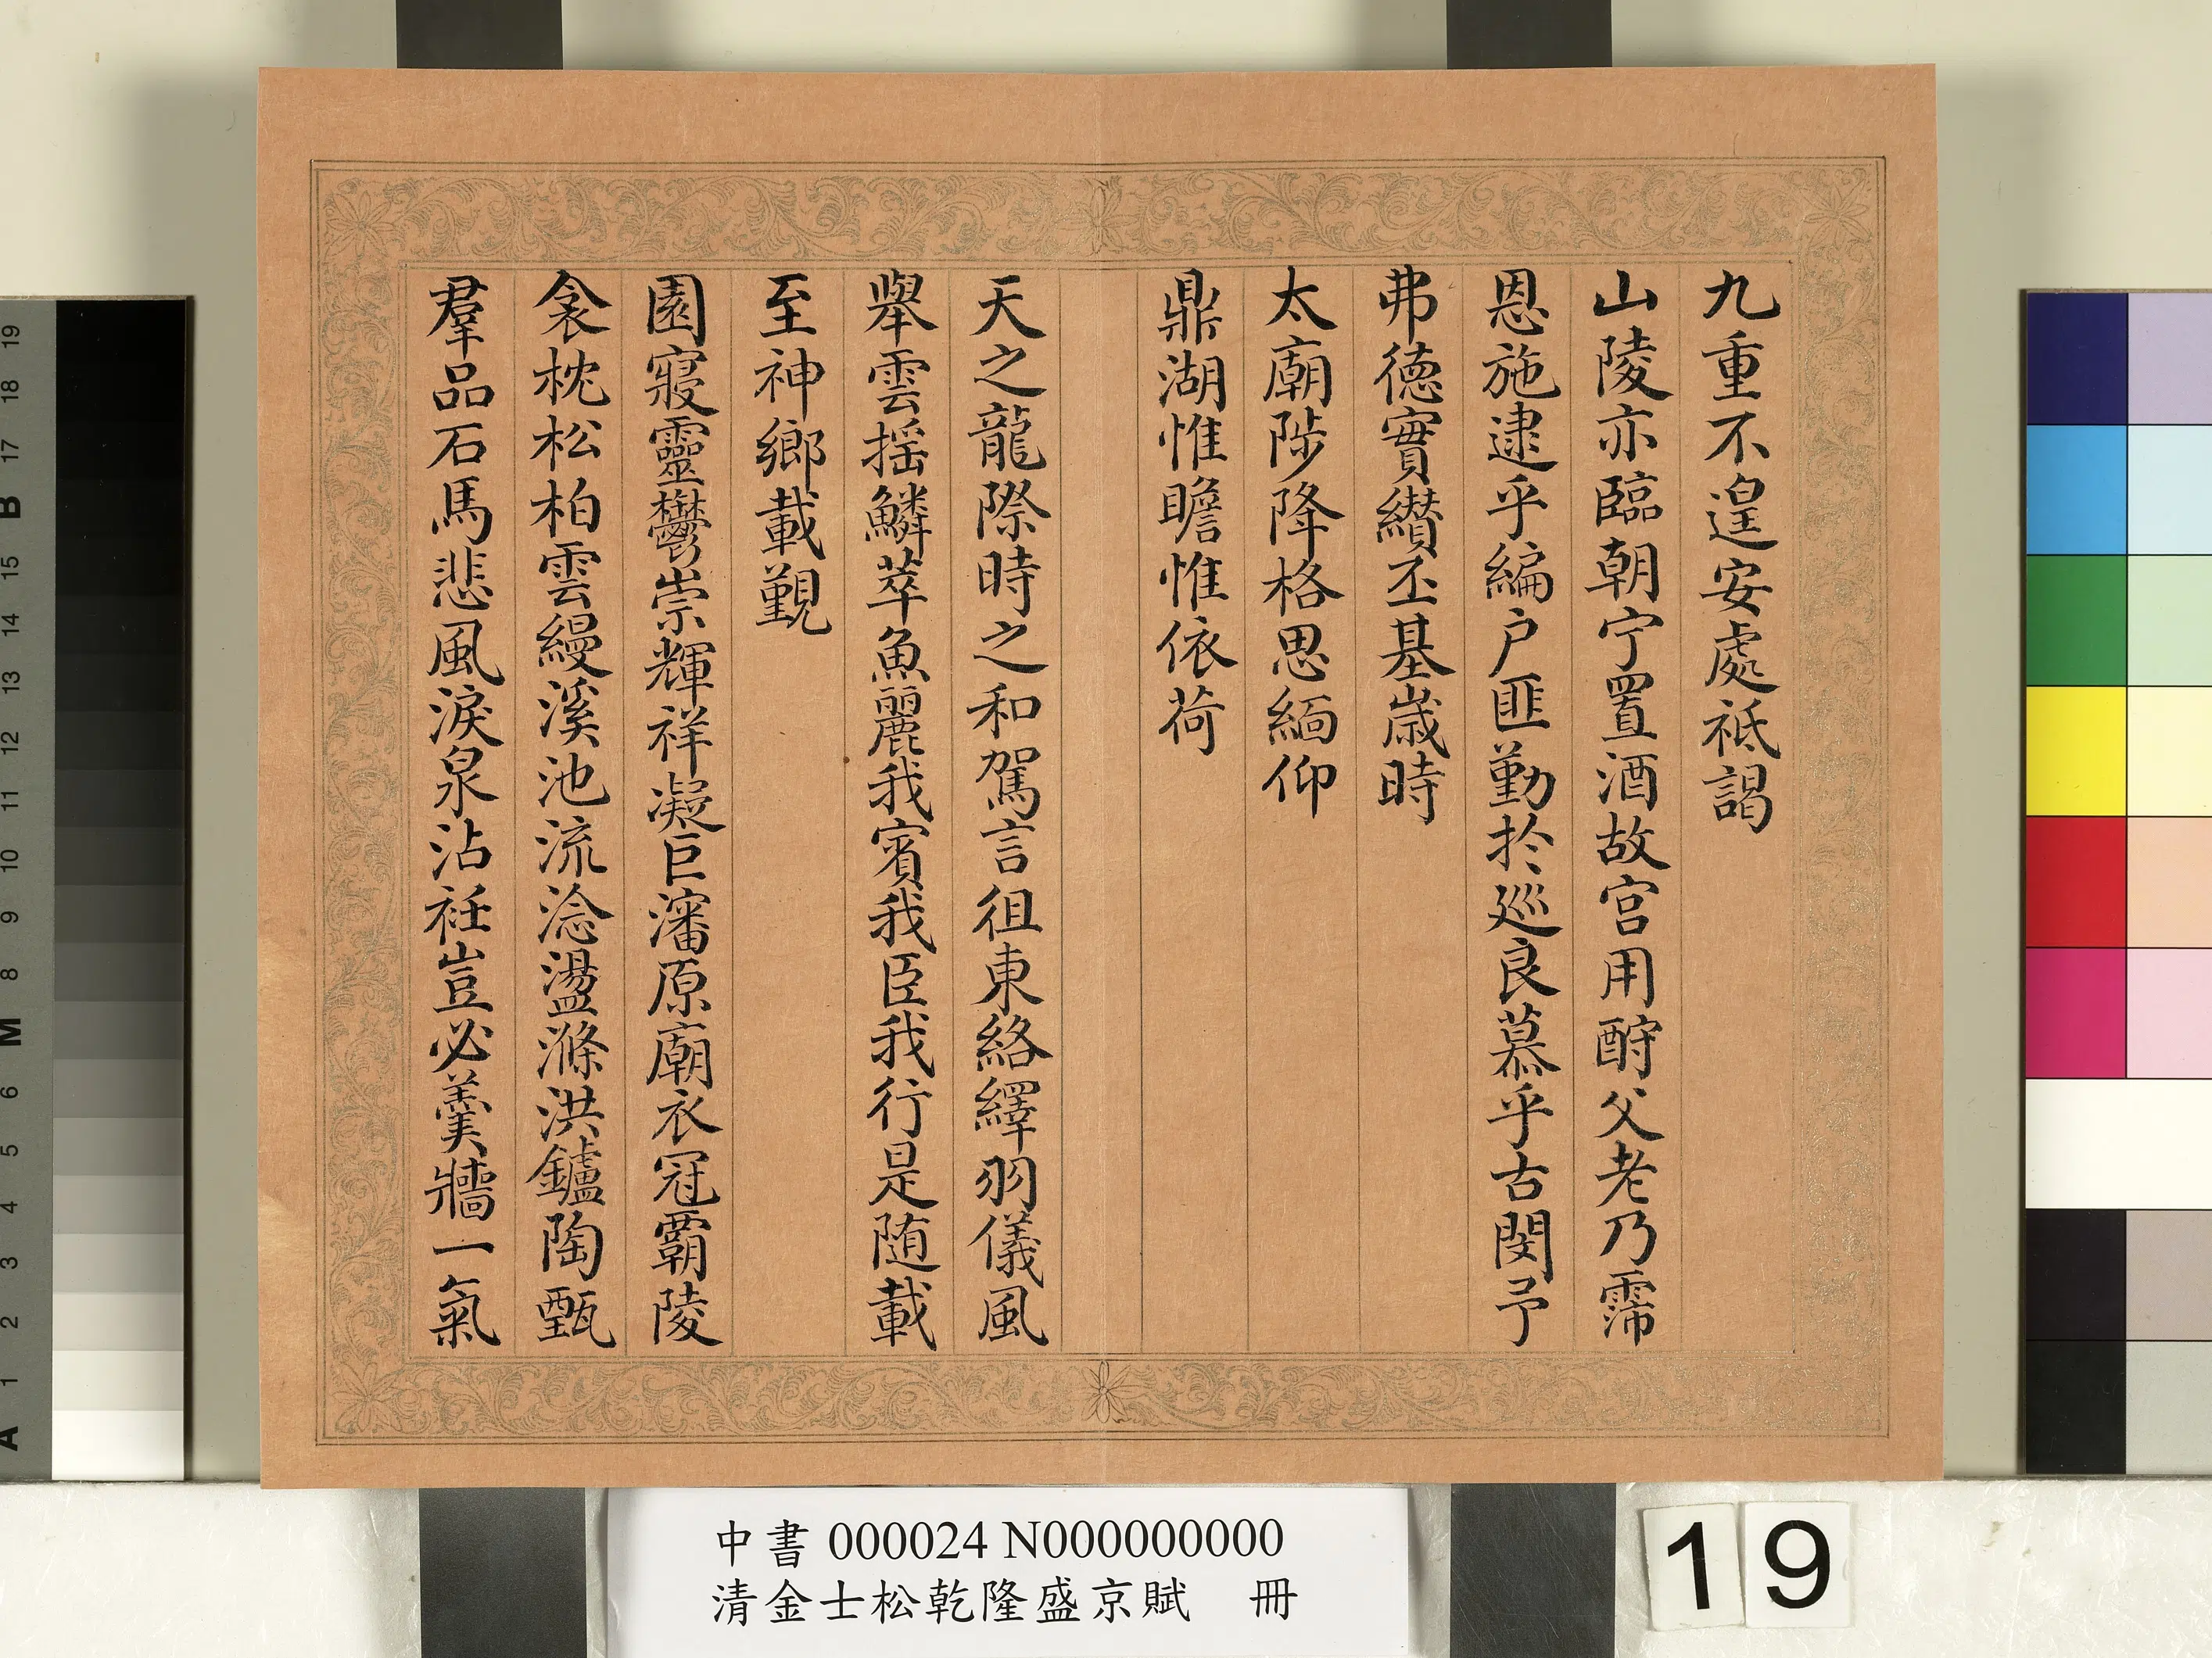 九重不遑安處祗謁
山陵亦臨朝宁置酒故宮用酧父老乃霈
恩施逮乎編户匪勤扵廵良慕乎古閔予
弗德實纘丕基嵗時
太廟陟降格思緬仰
鼎湖惟瞻惟依荷
天之龍際時之和駕言徂東絡繹羽儀風
舉雲揺鱗萃魚麗我賓我臣我行是随載
至神鄉載覲
園寢靈鬱崇輝祥凝巨瀋原廟衣冠霸陵
衾枕松柏雲縵溪池流淰盪滌洪鑪陶甄
羣品石馬悲風淚泉沾衽豈必羹牆一氣
中書 000024 N000000000
清金士松乾隆盛京賦 冊
19
19
18
17
B
15
14
13
12
11
10
9
8
M
6
5
4
3
2
1
A